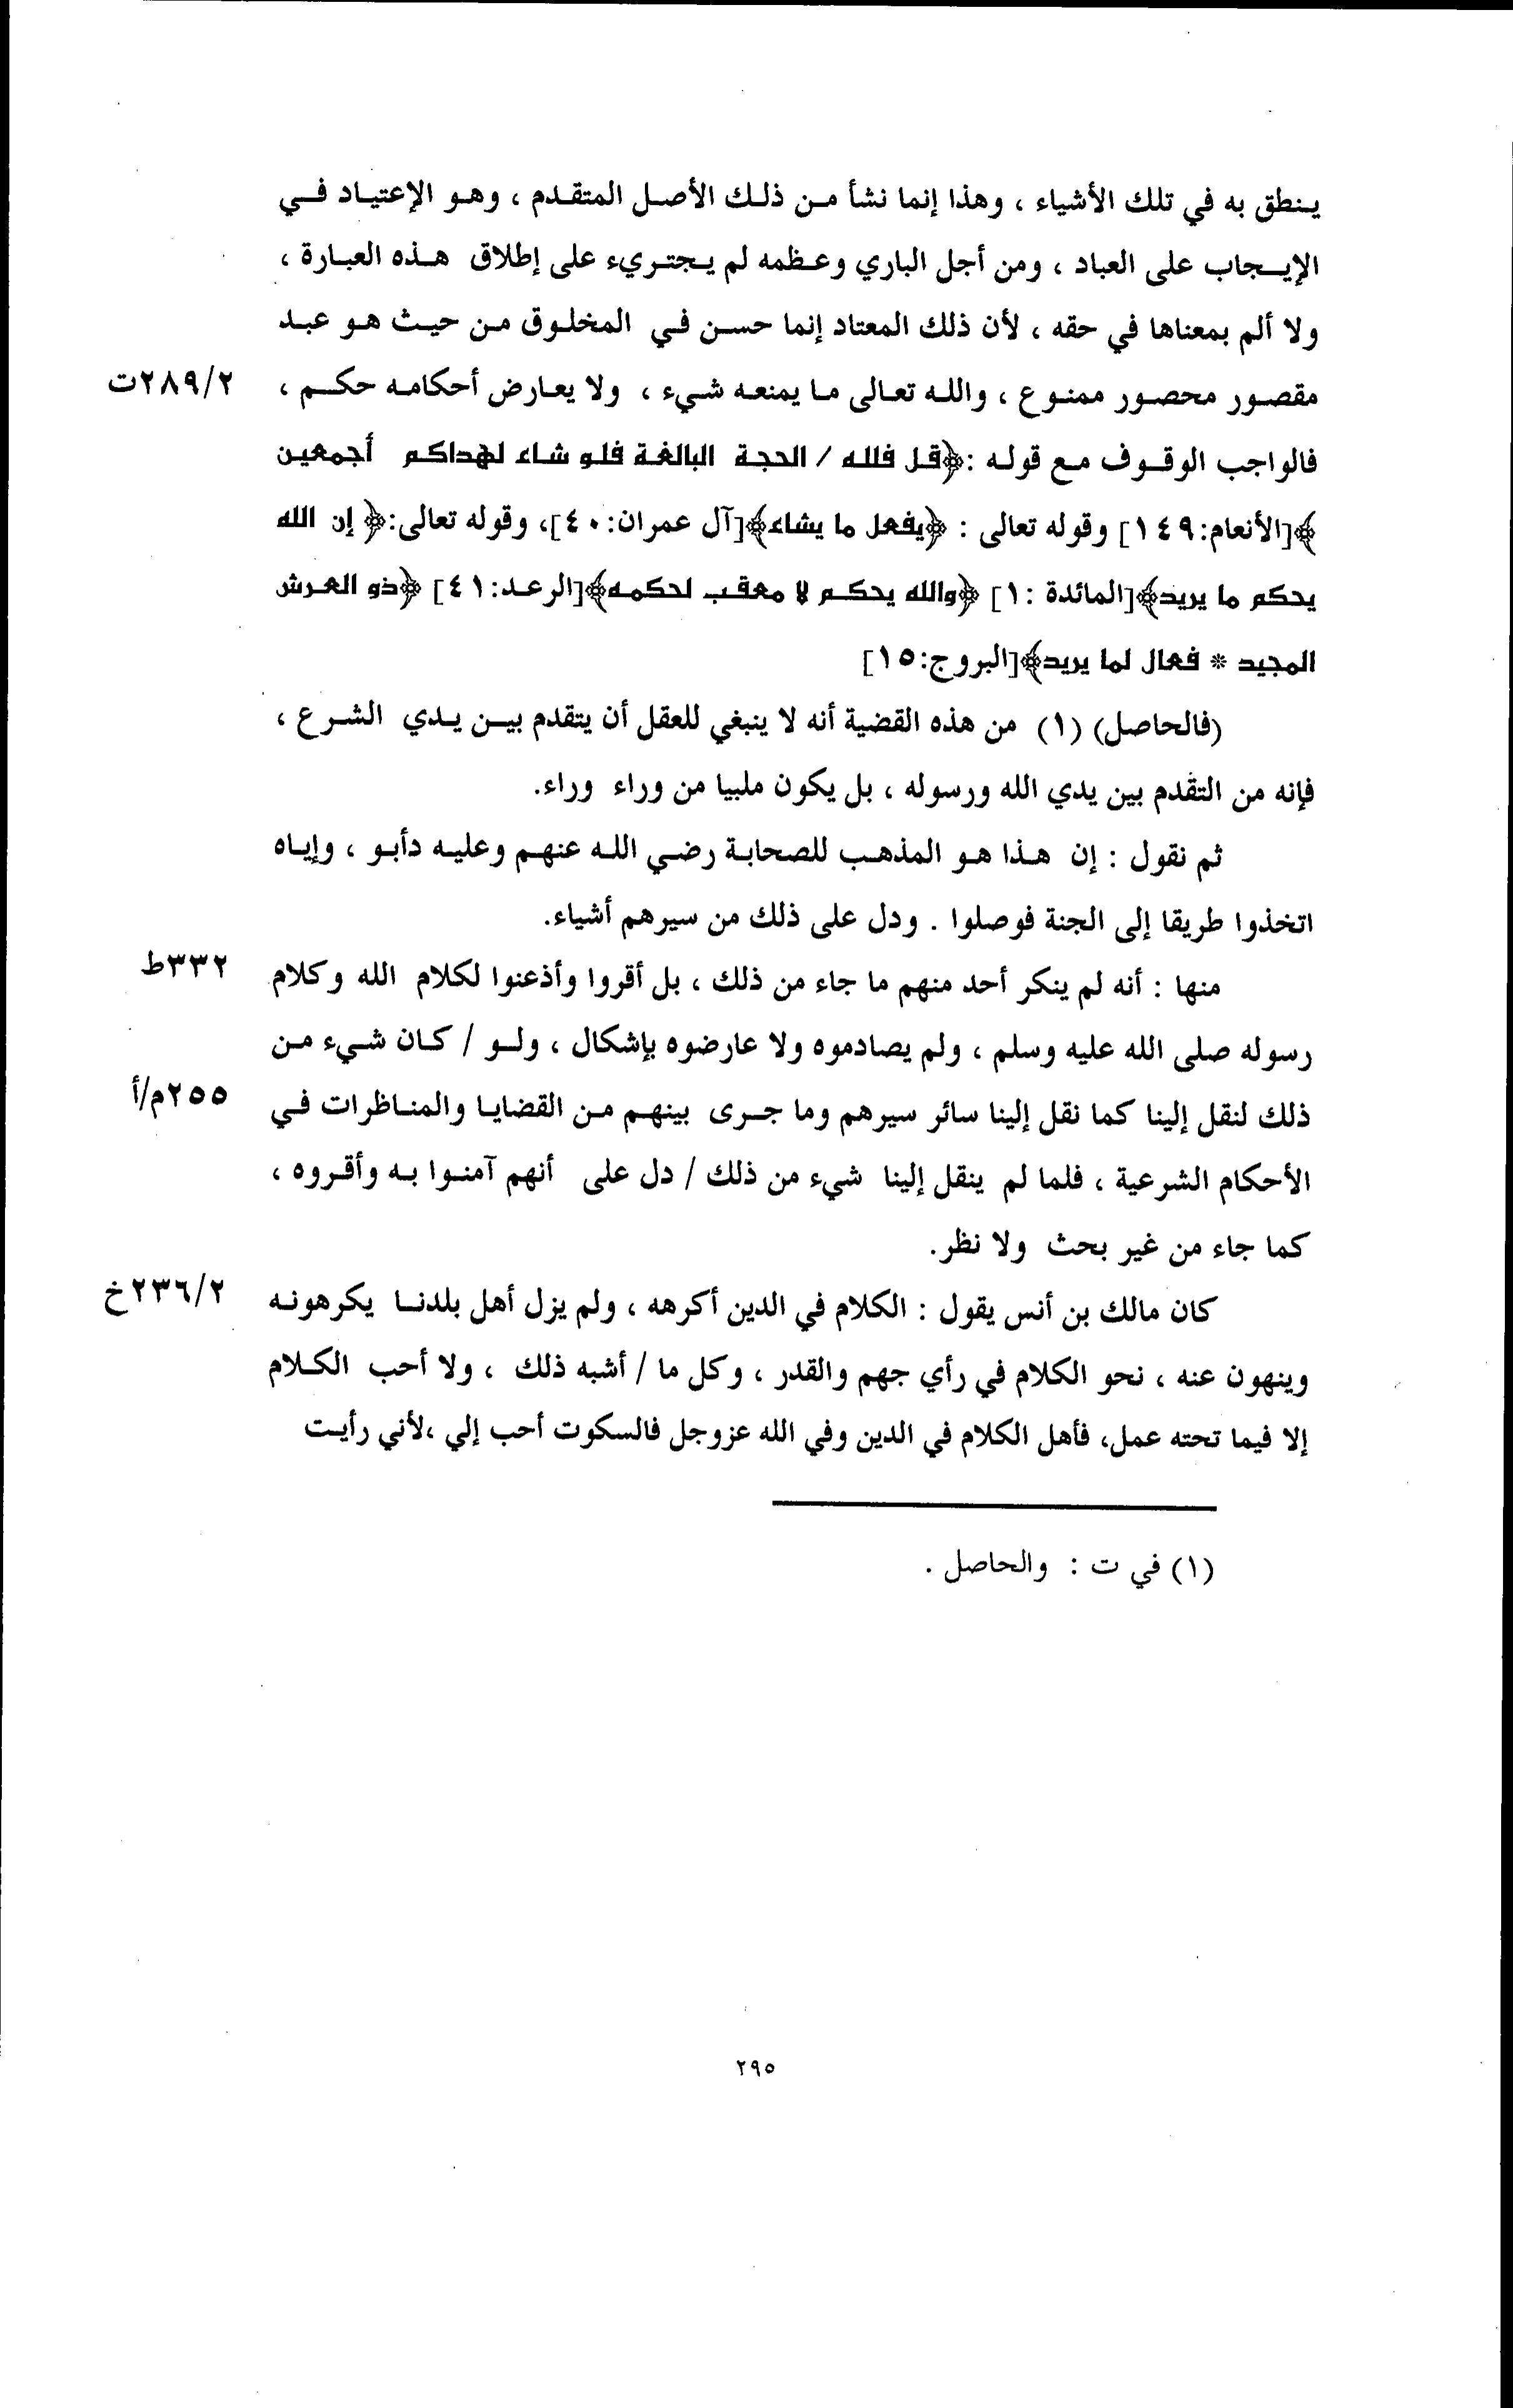 ينطق به في تلك الأشياء ، وهذا إنما نشأ من ذلك الأصل المتقدم ، وهو الإعتياد في
الإيجاب على العباد ، ومن أجل الباري وعظمه لم يجتريء على إطلاق هذه العبارة ،
ولا ألم بمعناها في حقه ، لأن ذلك المعتاد إنما حسن في المخلوق من حيث هو عبد
مقصور محصور ممنوع ، والله تعالى ما يمنعه شيء ، ولا يعارض أحكامه حكم ،
٢٨٩/٢ت
فالواجب الوقوف مع قوله :﴿قل فلله / الحجة البالغة فلو شاء لهداكم أجمعين
﴾[الأنعام:١٤٩] وقوله تعالى : ﴿يفعل ما يشاء﴾[آل عمران:٤٠]، وقوله تعالى:﴿ إن الله
يحكم ما يريد﴾[المائدة :١] ﴿والله يحكم لا معقب لحكمه﴾[الرعد:٤١] ﴿ذو العرش
المجيد * فعال لما يريد﴾[البروج:١٥]
(فالحاصل) (١) من هذه القضية أنه لا ينبغي للعقل أن يتقدم بين يدي الشرع ،
فإنه من التقدم بين يدي الله ورسوله ، بل يكون ملبيا من وراء وراء.
ثم نقول : إن هذا هو المذهب للصحابة رضي الله عنهم وعليه دأبو ، وإياه
اتخذوا طريقا إلى الجنة فوصلوا . ودل على ذلك من سيرهم أشياء.
منها : أنه لم ينكر أحد منهم ما جاء من ذلك ، بل أقروا وأذعنوا لكلام الله وكلام
٣٣٢ط
رسوله صلى الله عليه وسلم ، ولم يصادموه ولا عارضوه بإشكال ، ولو / كان شيء من
ذلك لنقل إلينا كما نقل إلينا سائر سيرهم وما جرى بينهم من القضايا والمناظرات في
٢٥٥م/أ
الأحكام الشرعية ، فلما لم ينقل إلينا شيء من ذلك / دل على أنهم آمنوا به وأقروه ،
كما جاء من غير بحث ولا نظر.
كان مالك بن أنس يقول : الكلام في الدين أكرهه ، ولم يزل أهل بلدنا يكرهونه
٢٣٦/٢خ
وينهون عنه ، نحو الكلام في رأي جهم والقدر ، وكل ما / أشبه ذلك ، ولا أحب الكلام
إلا فيما تحته عمل، فأهل الكلام في الدين وفي الله عزوجل فالسكوت أحب إلي ،لأني رأيت
(١) في ت : والحاصل .
٢٩٥